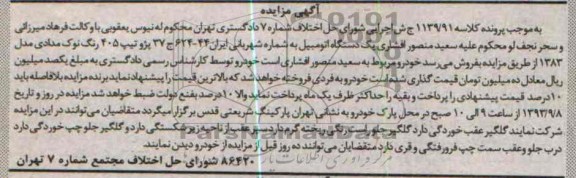 آگهی مزایده
به موجب پرونده کلاسه ۱۱۳۹/۹۱ ج ش اجرایی شورای حل اختلاف شماره ۷ دادگستری تهران محکوم له نیوس یعقوبی با وکالت فرهاد میرزائی
و سحر نجف لو محکوم علیه سعید منصور افشاری یک دستگاه اتومبیل به شماره شهربانی ایران ۴۴-۶۲۴ ج ۳۷ پژو تیپ ۴۰۵ رنگ نوک مدادی مدل
۱۳۸۳ از طریق مزایده بفروش می رسد خودرو مربوط به سعید منصور افشاری است خودرو توسط کارشناس رسمی دادگستری به مبلغ یکصد میلیون
ریال معادل ده میلیون تومان قیمت گذاری شده است خودرو به فردی فروخته خواهد شد که بالاترین قیمت را پیشنهاد نماید برنده مزایده بلافاصله باید
۱۰ درصد قیمت پیشنهادی را پرداخت و بقیه را حداکثر ظرف یک ماه پرداخت نماید والا ۱۰ درصد بنفع دولت ضبط خواهد شد مزایده در روز و تاریخ
۱۳۹۳/۹/۸ از ساعت ۹ الی ۱۰ صبح در محل پارک خودرو به نشانی تهران پارکینگ شریعتی قدس برگزار میگردد متقاضیان می توانند در این مزایده
شرکت نمایند گلگیر عقب خوردگی دارد گلگیر جلو است رنگ ریخته گرم دارد سپر عقب از ناحیه زیر شکستگی دارد و گلگیر جلو چپ خوردگی دارد
درب جلو و عقب سمت چپ فرورفتگی و قری دارد متقاضیان می توانند ده روز قبل از مزایده از خودرو دیدن نمایند.
۸۶۴۲۰ شورای حل اختلاف مجتمع شماره ۷ تهران